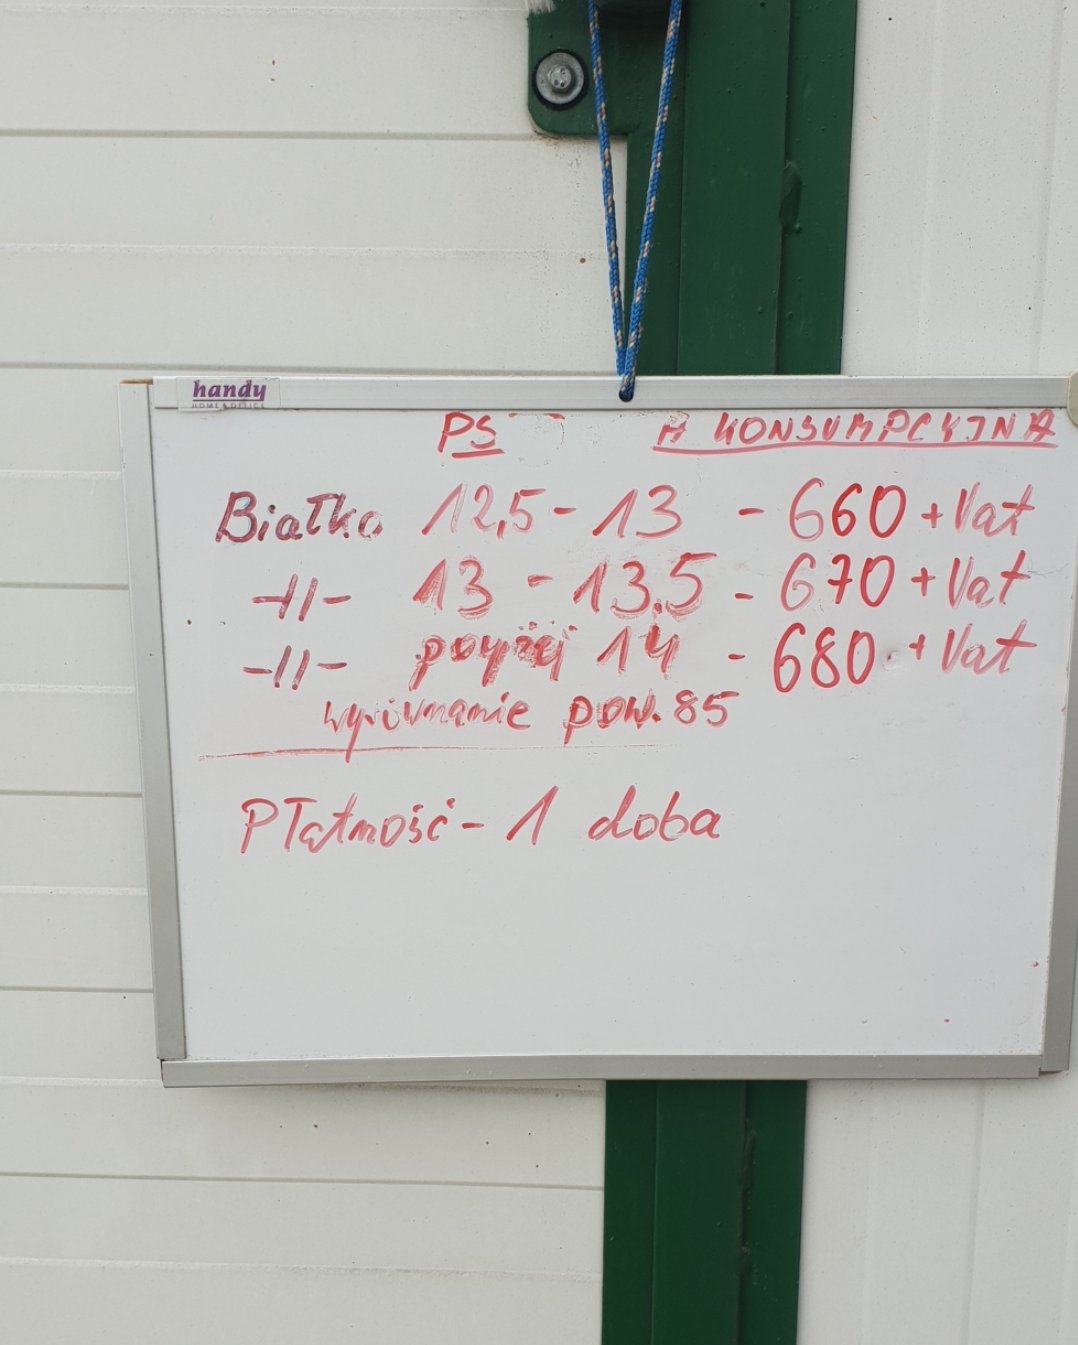 handy
HOME & OFFICE
PS A KONSUMPCYJNA
Białko 12,5 - 13 - 660 + Vat
-II- 13 - 13.5 - 670 + Vat
-II- powyżej 14 - 680 + Vat
wyrównanie pow. 85
Płatność - 1 doba